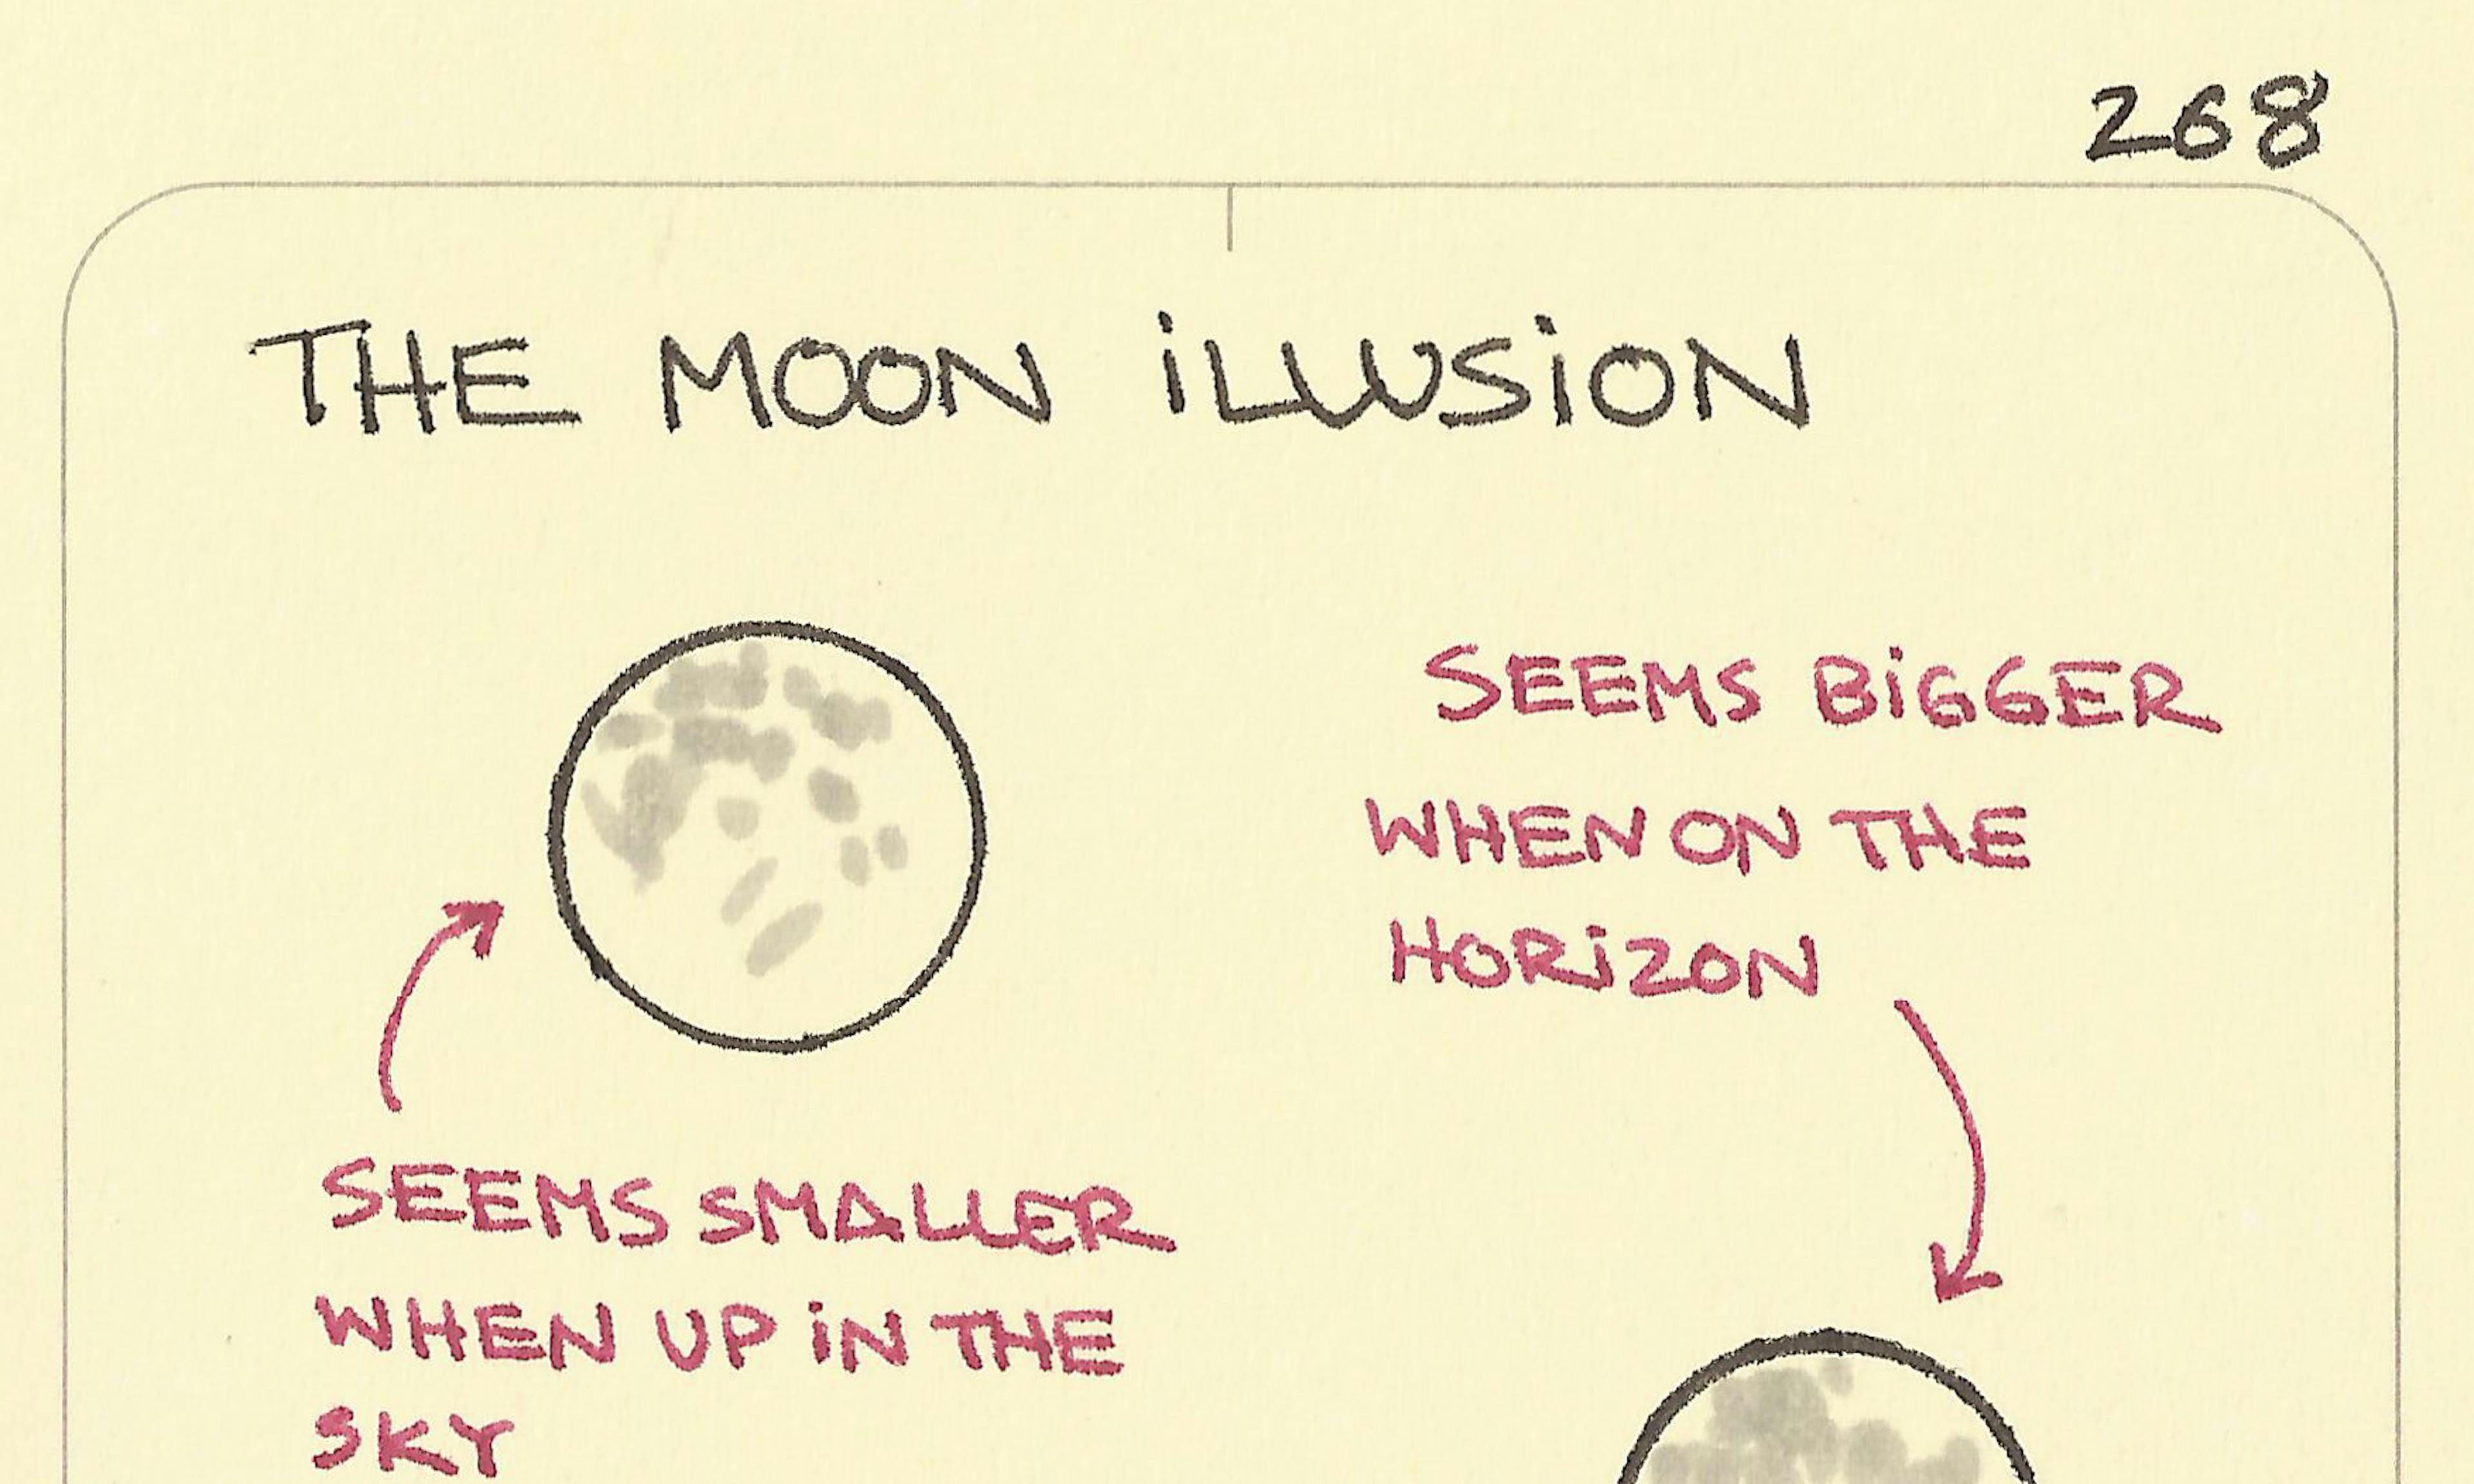 268
THE MOON iLLUSiON
SEEMS BiGGER
WHEN ON THE
HORiZON
SEEMS SMALLER
WHEN UP iN THE
SKY